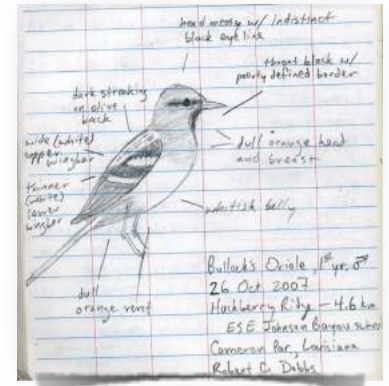 head messy w/ indistinct
black eyeline
throat black w/
poorly defined border
dark streaking
on olive
back
wide (white)
upper
wingbar
dull orange head
and breast
thinner
(white)
lower
wingbar
whitish belly
dull
orange vent
Bullock's Oriole, 1st yr, ♂
26 Oct 2007
Hackberry Ridge – 4.6 km
ESE Johnson Bayou school
Cameron Par, Louisiana
Robert C. Dobbs